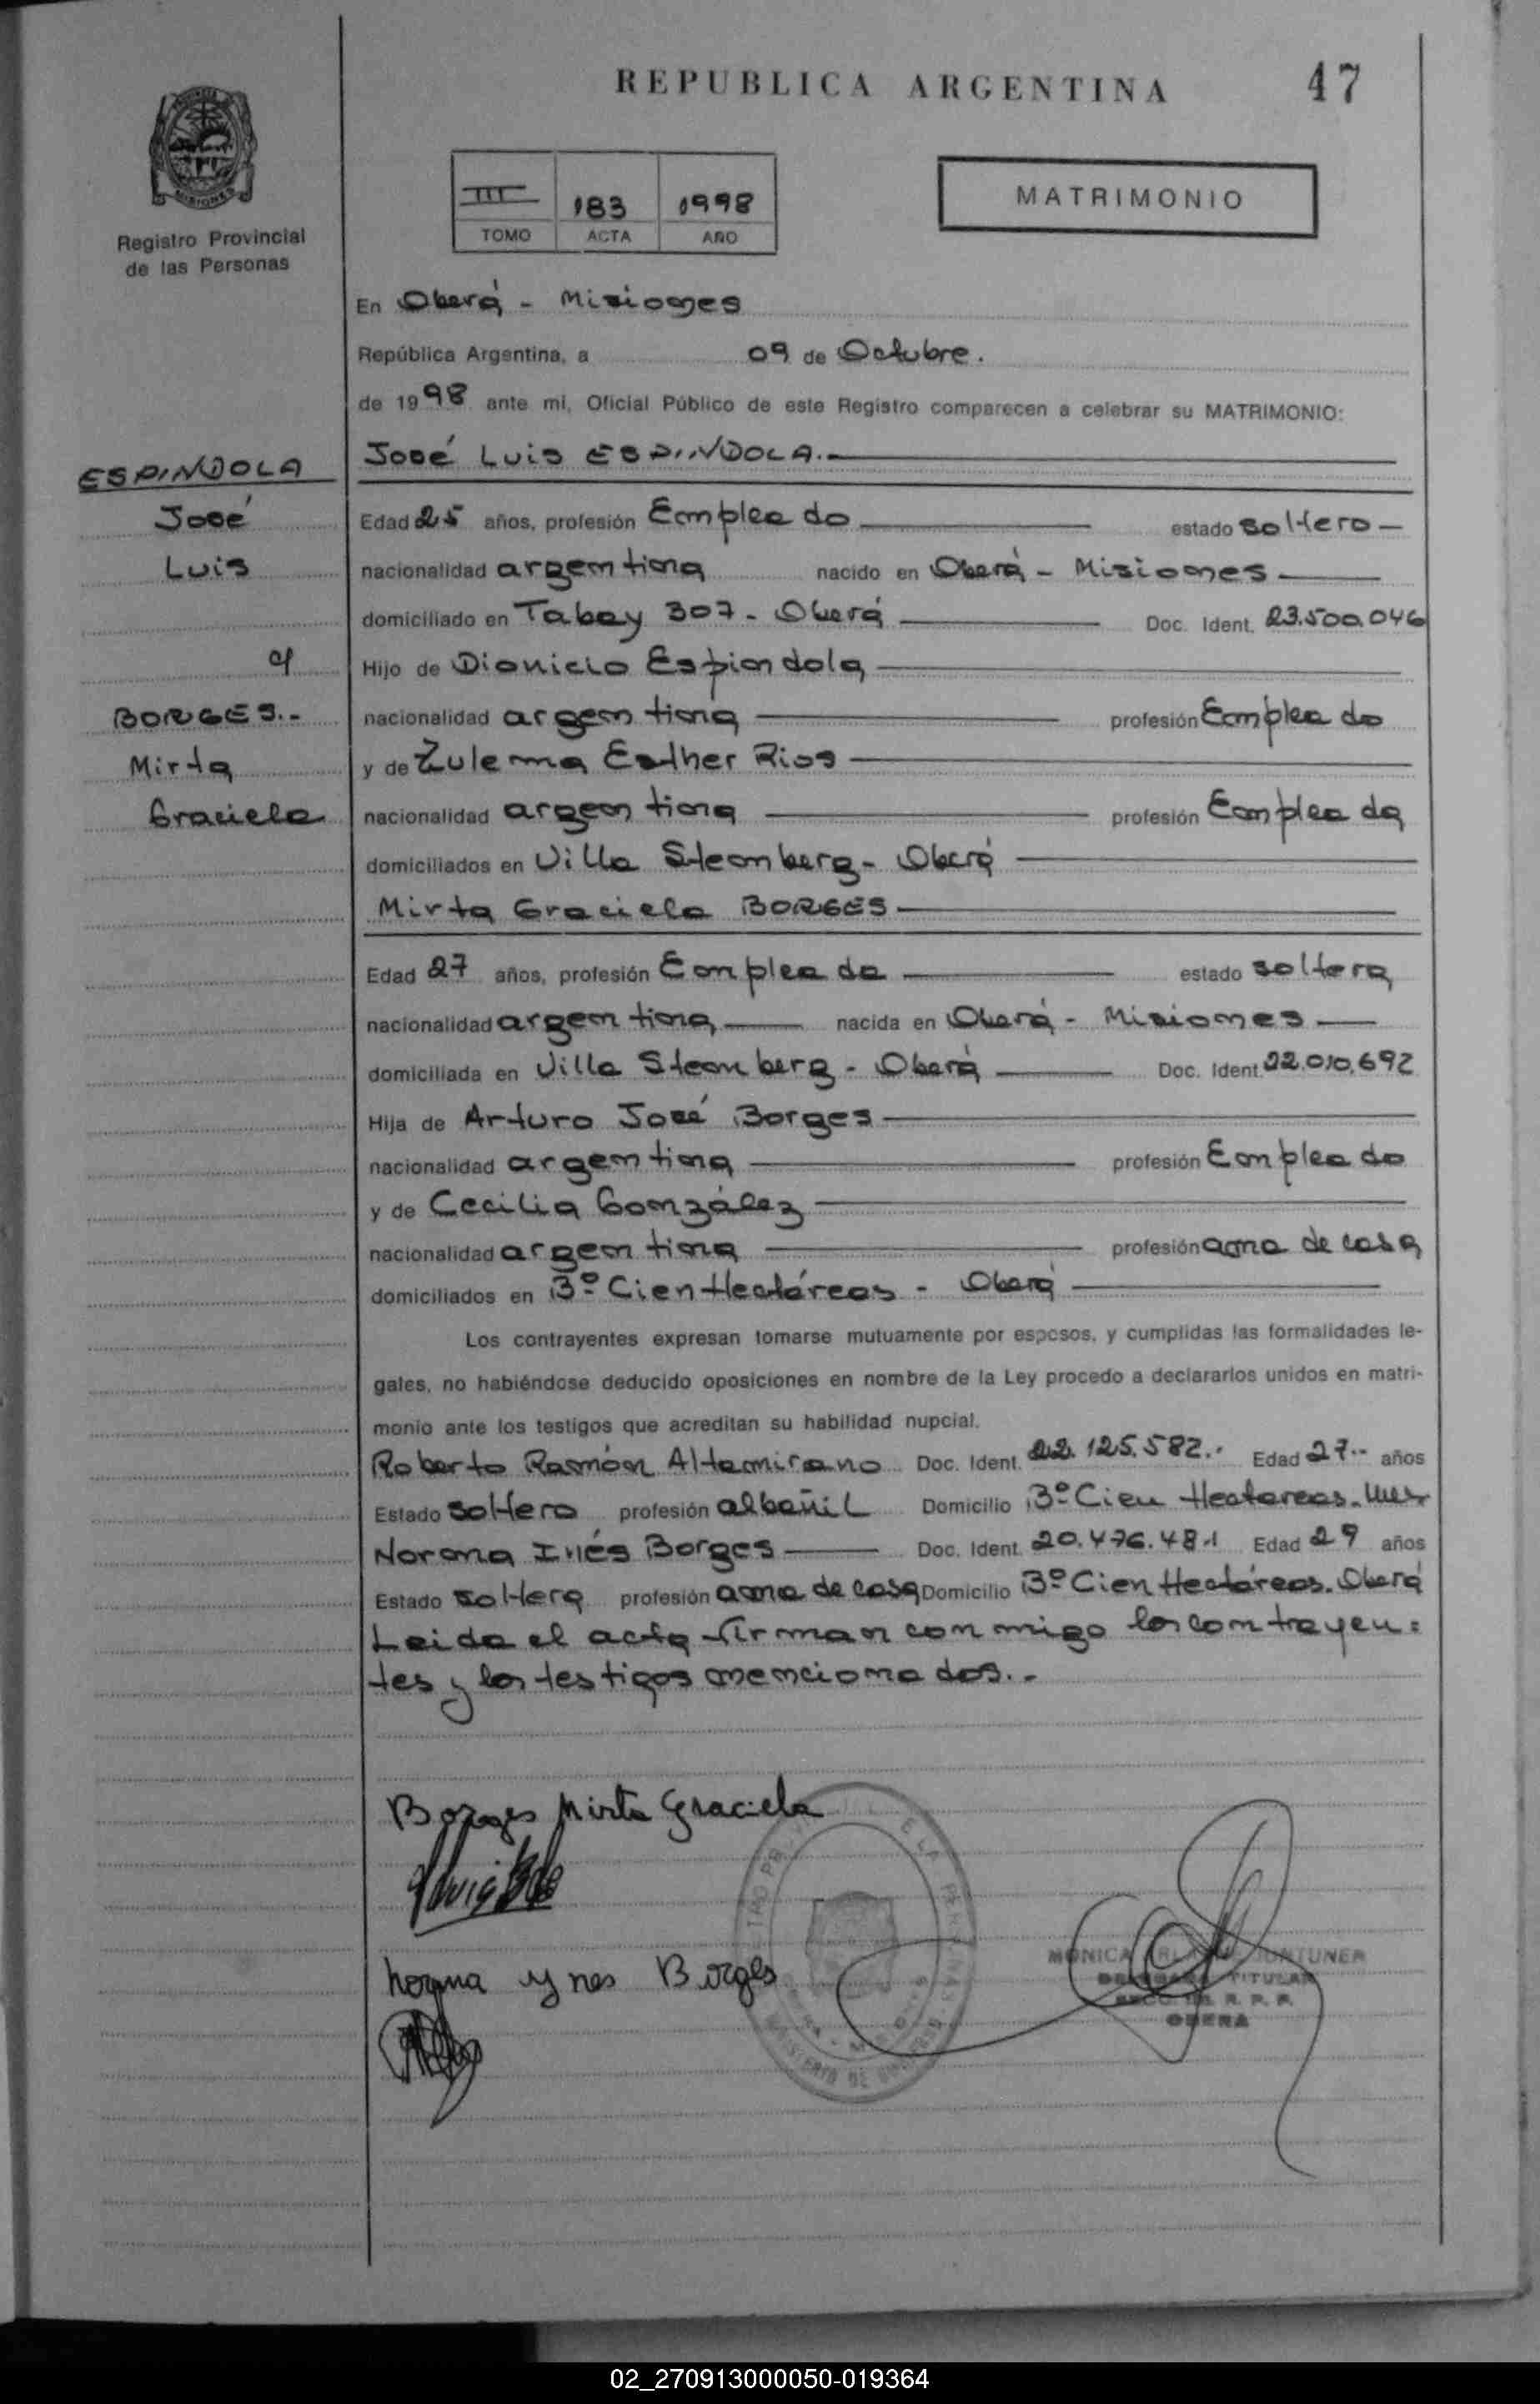 REPUBLICA ARGENTINA 47
III 183 1998
TOMO ACTA AÑO
MATRIMONIO
MISIONES
Registro Provincial
de las Personas
ESPINDOLA
José
Luis
c/
BORGES.-
Mirta
Graciela
En Oberá - Misiones
República Argentina, a 09 de Octubre.
de 1998 ante mi, Oficial Público de este Registro comparecen a celebrar su MATRIMONIO:
José Luis ESPINDOLA.-
Edad 25 años, profesión Empleado estado soltero -
nacionalidad argentina nacido en Oberá - Misiones
domiciliado en Tabay 307 - Oberá Doc. Ident. 23.500.046
Hijo de Dionicio Espindola
nacionalidad argentina profesión Empleado
y de Zulema Esther Rios
nacionalidad argentina profesión Empleada
domiciliados en Villa Stemberg - Oberá
Mirta Graciela BORGES
Edad 27 años, profesión Empleada estado soltera
nacionalidad argentina nacida en Oberá - Misiones
domiciliada en Villa Stemberg - Oberá Doc. Ident 22.010.692
Hija de Arturo José Borges
nacionalidad argentina profesión Empleado
y de Cecilia González
nacionalidad argentina profesión ama de casa
domiciliados en B° Cien Hectáreas - Oberá
Los contrayentes expresan tomarse mutuamente por esposos, y cumplidas las formalidades le-
gales, no habiéndose deducido oposiciones en nombre de la Ley procedo a declararlos unidos en matri-
monio ante los testigos que acreditan su habilidad nupcial.
Roberto Ramón Altamirano Doc. Ident. 22.125.582.- Edad 27.- años
Estado soltero profesión albañil Domicilio B° Cien Hectareas.
Norma Inés Borges Doc. Ident. 20.476.481 Edad 29 años
Estado soltera profesión ama de casa Domicilio B° Cien Hectáreas. Oberá
Leida el acta firman conmigo los contrayen=
tes y los testigos mencionados.-
Borges Mirta Graciela
norma ynes Borges
MONICA
TITULAR
R. P. P.
OBERA
02_270913000050-019364